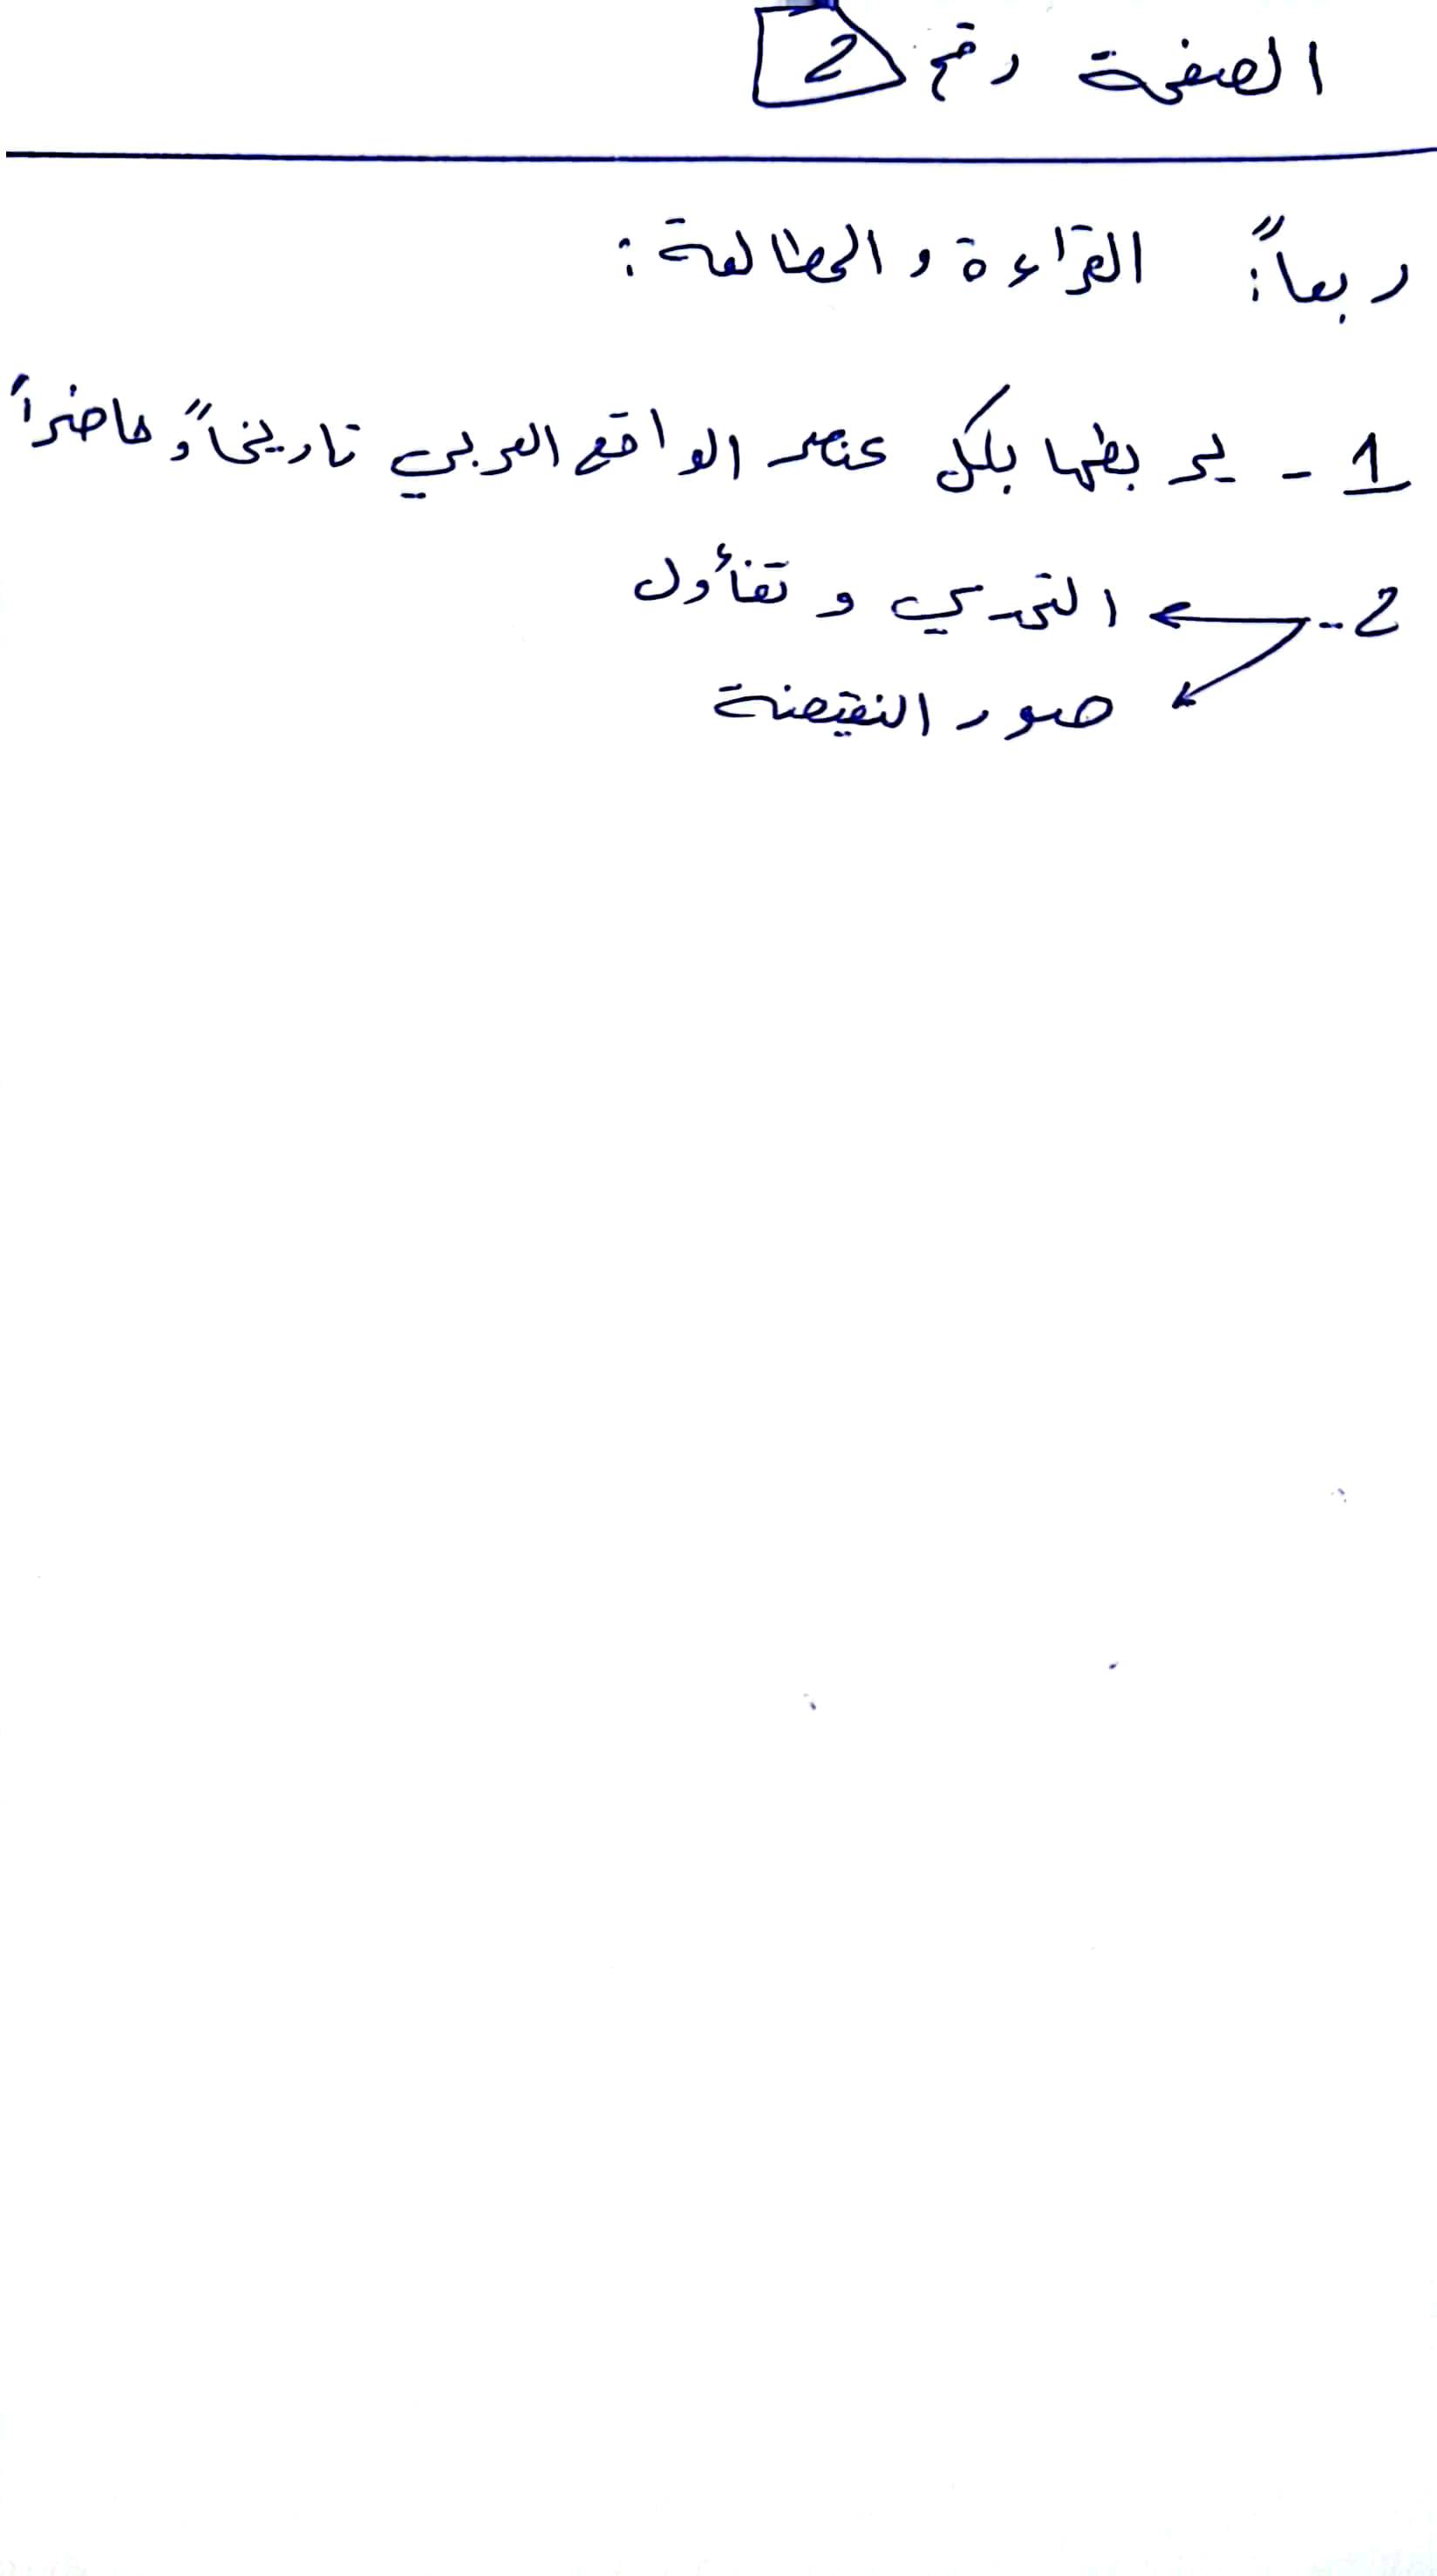 الصفحة رقم 2
ربعاً: القراءة والمطالعة:
1 - يربطها بكل عنصر الواقع العربي تاريخاً وحاضراً
2 - التحدي و تفأول
صور النقيضة